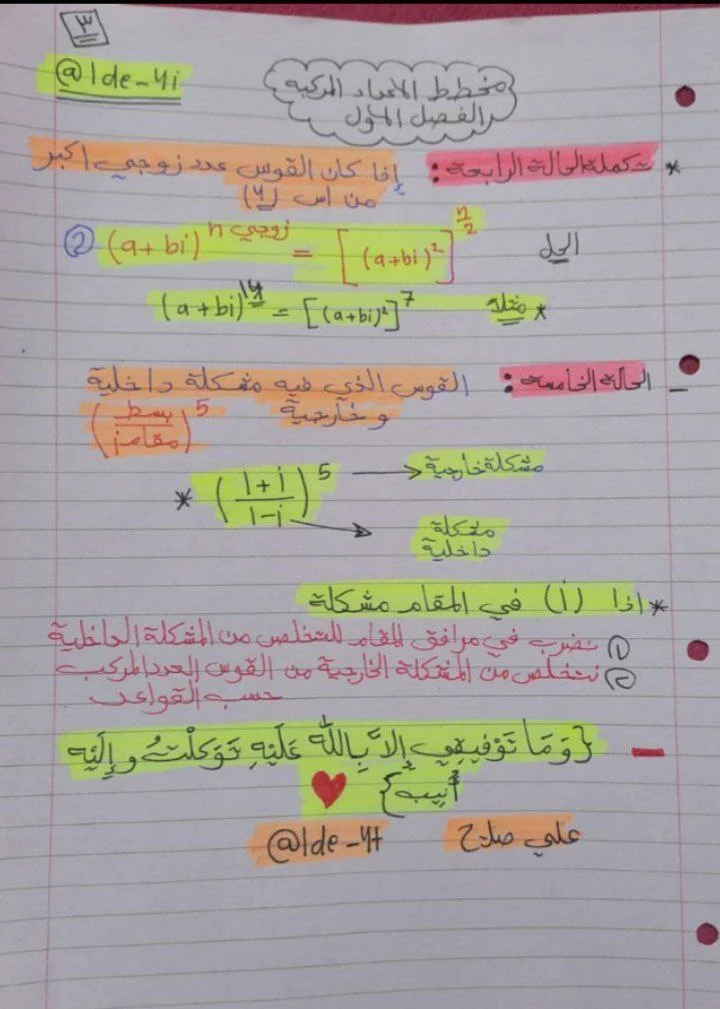 ٣
@lde-yi
مخطط الاعداد المركبه
الفصل الاول
* تكملة الحالة الرابعة: إذا كان القوس عدد زوجي اكبر
من اس (٢)
الحل (2) (a+bi)^n زوجي = [(a+bi)²]^(n/2)
* مثلا (a+bi)^14 = [(a+bi)²]^7
_ الحالة الخامسة: القوس الذي فيه مشكلة داخلية
و خارجية
(بسط / مقام i)^5
* ((1+i)/(1-i))^5 → مشكلة خارجية
→ مشكلة
داخلية
* اذا (i) في المقام مشكلة
(١) نضرب في مرافق المقام للتخلص من المشكلة الداخلية
(٢) نتخلص من المشكلة الخارجية من القوس العدد المركب
حسب القواعد
_ {وَمَا تَوْفِيقِي إِلَّا بِاللَّهِ عَلَيْهِ تَوَكَّلْتُ وإِلَيْهِ
أُنِيبُ}
علي صلاح @lde-y